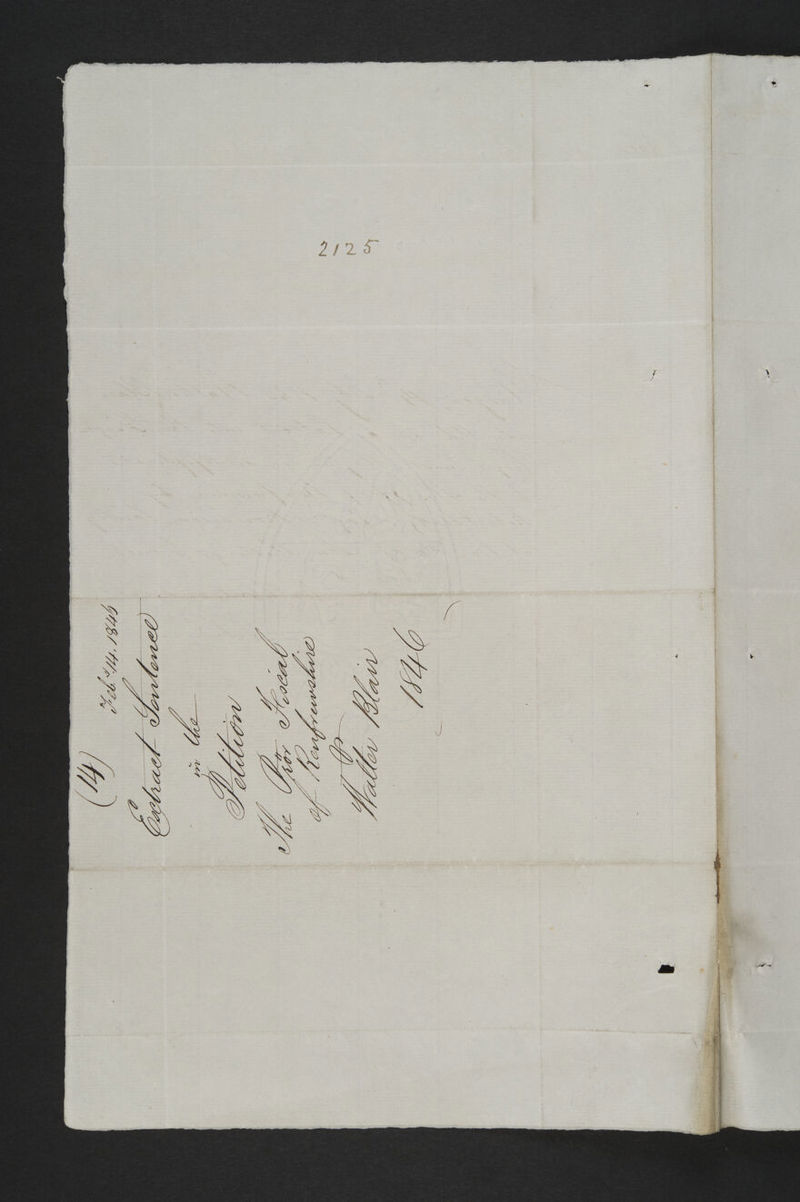 2125
(14) Feby 14. 1846
Extract Sentence
in the
Petition
The Pror Fiscal
of Renfrewshire
Walter Blair
1846